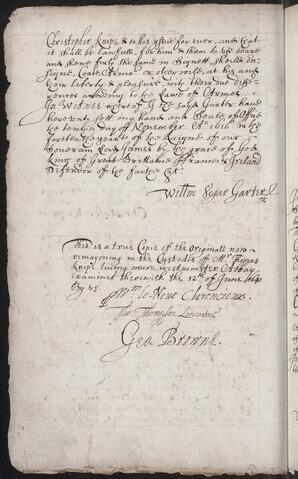 Christopher Knipe & to his yssue for ever, and that
it shall be lawfull for him & them to use beare
and shewe forth the same in Signett, shield
Coate Armor or otherwise, at his and
their liberty & pleasure, with their due diffe-
rences according to the Lawe of Armes.
In Witnes wherof I the sayd Garter have
hereunto sett my hand and Seale of Office
the day off November Ao 1616 in the
yeare of the Raigne of our
Soveraigne Lord James by the grace of God
king of Great Brittaine ffrance & Ireland
Defendor of the faithe &c.
Willm Segar Garter
This is a true Copie of the Originall now
remayning in the Custodie of Mr Thomas
Knipe living neere westminster Abbay
examined therewith the 12th of June 1640
By us
Wm le Neve Clarenceux
Tho: Thompson Lancaster
Geo Browne